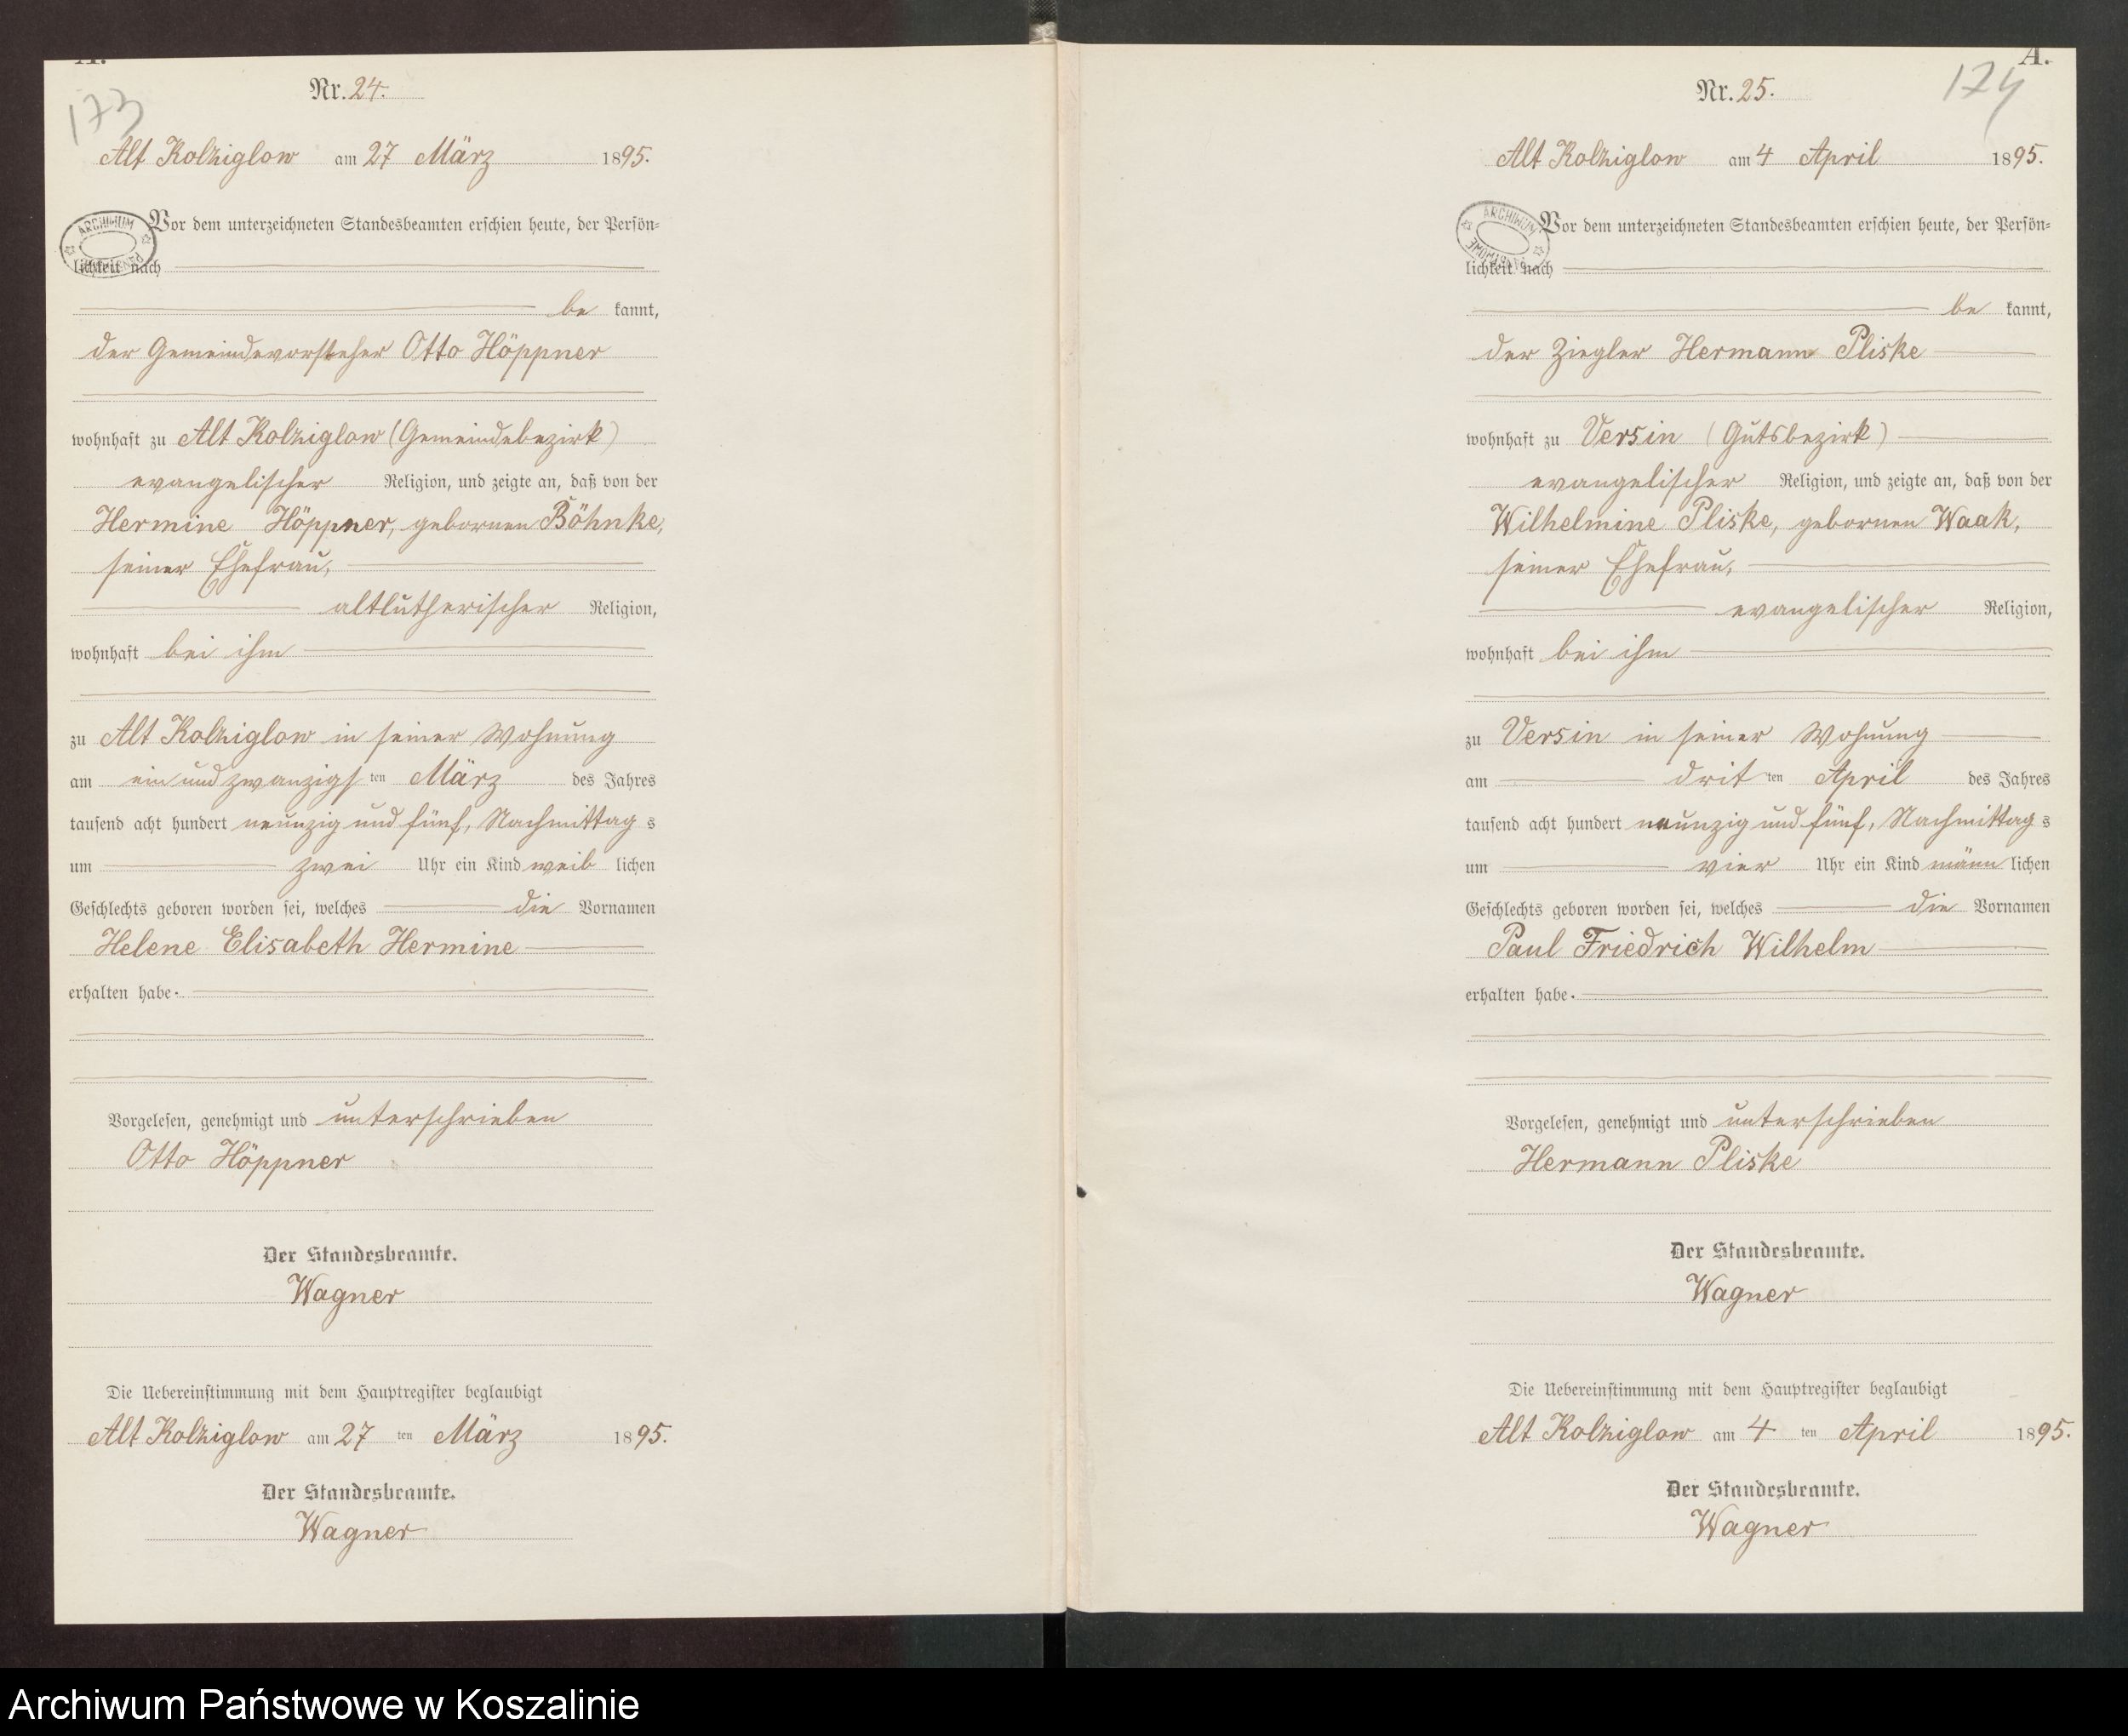 A.
173
Nr. 24.
Alt Kolziglow am 27 März 1895.
ARCHIWUM
Vor dem unterzeichneten Standesbeamten erschien heute, der Persön-
lichkeit nach
be kannt,
der Gemeindevorsteher Otto Höppner
wohnhaft zu Alt Kolziglow (Gemeindebezirk)
evangelischer Religion, und zeigte an, daß von der
Hermine Höppner, gebornen Böhnke,
seiner Ehefrau,
altlutherischer Religion,
wohnhaft bei ihm
zu Alt Kolziglow in seiner Wohnung
am ein und zwanzigsten März des Jahres
tausend acht hundert neunzig und fünf, Nachmittags
um zwei Uhr ein Kind weiblichen
Geschlechts geboren worden sei, welches die Vornamen
Helene Elisabeth Hermine
erhalten habe.
Vorgelesen, genehmigt und unterschrieben
Otto Höppner
Der Standesbeamte.
Wagner
Die Uebereinstimmung mit dem Hauptregister beglaubigt
Alt Kolziglow am 27 ten März 1895.
Der Standesbeamte.
Wagner
A.
174
Nr. 25.
Alt Kolziglow am 4 April 1895.
ARCHIWUM
Vor dem unterzeichneten Standesbeamten erschien heute, der Persön-
lichkeit nach
be kannt,
der Ziegler Hermann Pliske
wohnhaft zu Versin (Gutsbezirk)
evangelischer Religion, und zeigte an, daß von der
Wilhelmine Pliske, gebornen Waak,
seiner Ehefrau,
evangelischer Religion,
wohnhaft bei ihm
zu Versin in seiner Wohnung
am dritten April des Jahres
tausend acht hundert neunzig und fünf, Nachmittags
um vier Uhr ein Kind männlichen
Geschlechts geboren worden sei, welches die Vornamen
Paul Friedrich Wilhelm
erhalten habe.
Vorgelesen, genehmigt und unterschrieben
Hermann Pliske
Der Standesbeamte.
Wagner
Die Uebereinstimmung mit dem Hauptregister beglaubigt
Alt Kolziglow am 4 ten April 1895.
Der Standesbeamte.
Wagner
Archiwum Państwowe w Koszalinie